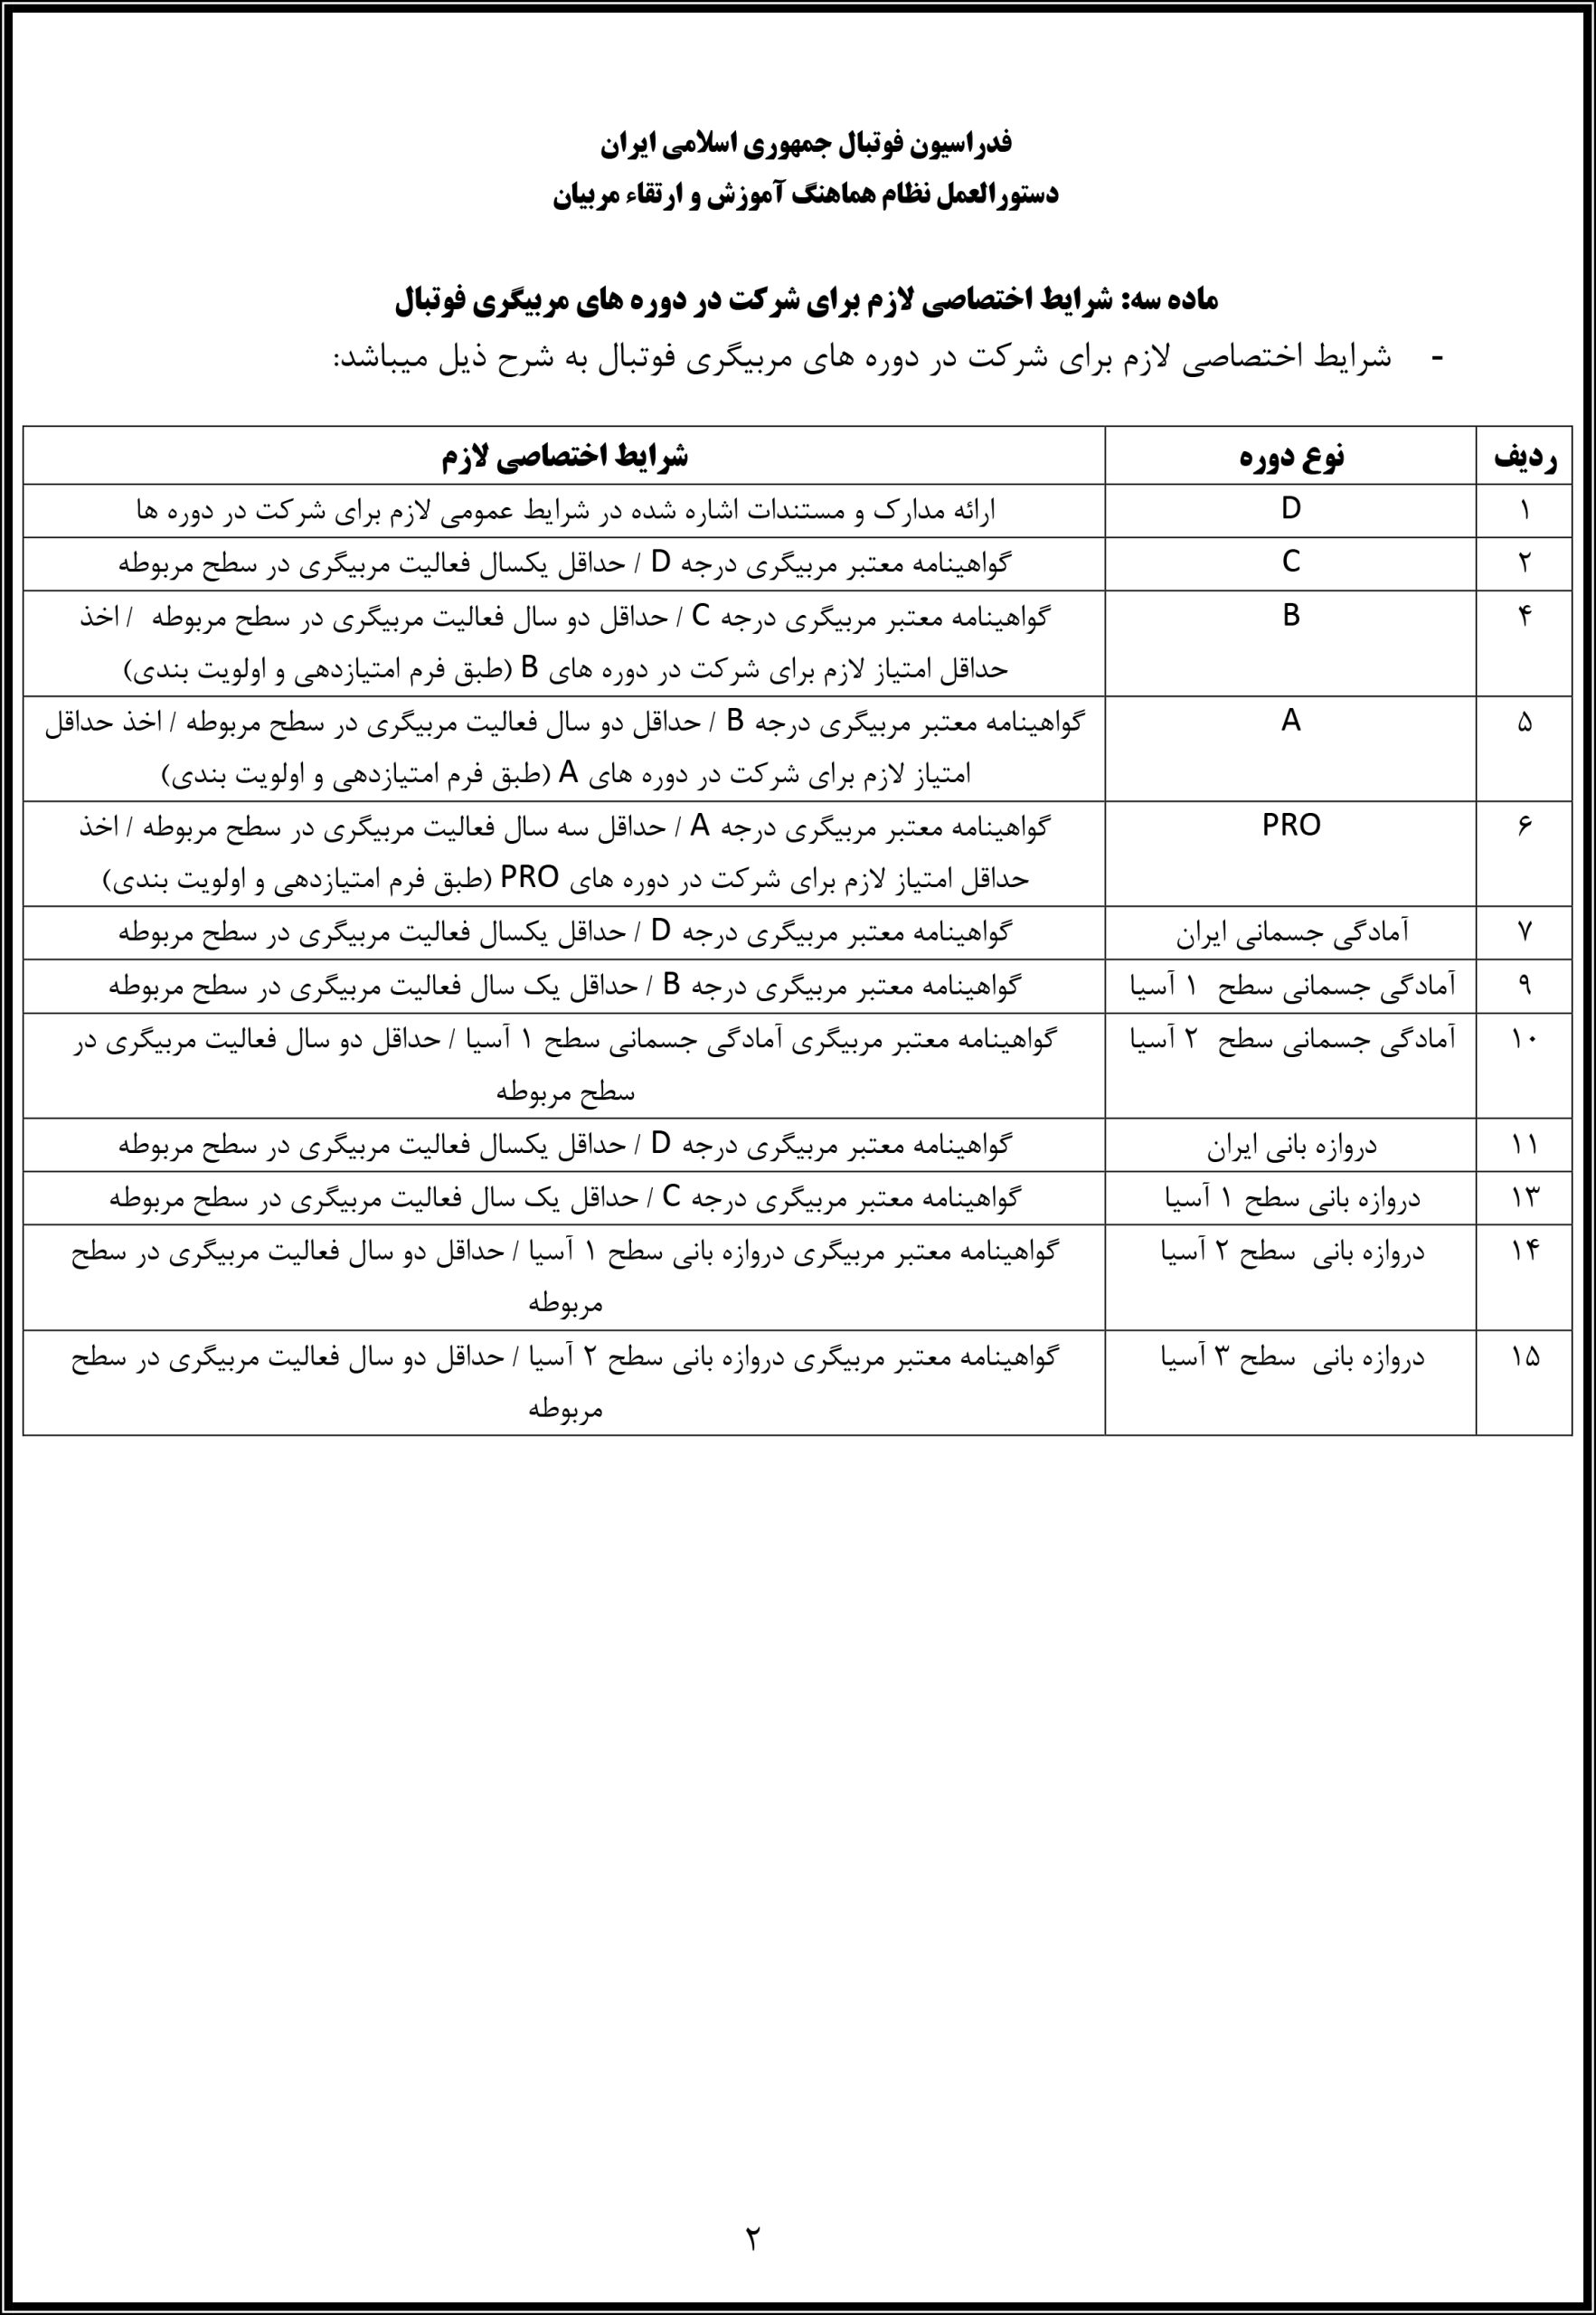 فدراسیون فوتبال جمهوری اسلامی ایران
دستورالعمل نظام هماهنگ آموزش و ارتقاء مربیان
ماده سه: شرایط اختصاصی لازم برای شرکت در دوره های مربیگری فوتبال
- شرایط اختصاصی لازم برای شرکت در دوره های مربیگری فوتبال به شرح ذیل میباشد:
ردیف نوع دوره شرایط اختصاصی لازم
۱ D ارائه مدارک و مستندات اشاره شده در شرایط عمومی لازم برای شرکت در دوره ها
۲ C گواهینامه معتبر مربیگری درجه D / حداقل یکسال فعالیت مربیگری در سطح مربوطه
۴ B گواهینامه معتبر مربیگری درجه C / حداقل دو سال فعالیت مربیگری در سطح مربوطه / اخذ
حداقل امتیاز لازم برای شرکت در دوره های B (طبق فرم امتیازدهی و اولویت بندی)
۵ A گواهینامه معتبر مربیگری درجه B / حداقل دو سال فعالیت مربیگری در سطح مربوطه / اخذ حداقل
امتیاز لازم برای شرکت در دوره های A (طبق فرم امتیازدهی و اولویت بندی)
۶ PRO گواهینامه معتبر مربیگری درجه A / حداقل سه سال فعالیت مربیگری در سطح مربوطه / اخذ
حداقل امتیاز لازم برای شرکت در دوره های PRO (طبق فرم امتیازدهی و اولویت بندی)
۷ آمادگی جسمانی ایران گواهینامه معتبر مربیگری درجه D / حداقل یکسال فعالیت مربیگری در سطح مربوطه
۹ آمادگی جسمانی سطح ۱ آسیا گواهینامه معتبر مربیگری درجه B / حداقل یک سال فعالیت مربیگری در سطح مربوطه
۱۰ آمادگی جسمانی سطح ۲ آسیا گواهینامه معتبر مربیگری آمادگی جسمانی سطح ۱ آسیا / حداقل دو سال فعالیت مربیگری در
سطح مربوطه
۱۱ دروازه بانی ایران گواهینامه معتبر مربیگری درجه D / حداقل یکسال فعالیت مربیگری در سطح مربوطه
۱۳ دروازه بانی سطح ۱ آسیا گواهینامه معتبر مربیگری درجه C / حداقل یک سال فعالیت مربیگری در سطح مربوطه
۱۴ دروازه بانی سطح ۲ آسیا گواهینامه معتبر مربیگری دروازه بانی سطح ۱ آسیا / حداقل دو سال فعالیت مربیگری در سطح
مربوطه
۱۵ دروازه بانی سطح ۳ آسیا گواهینامه معتبر مربیگری دروازه بانی سطح ۲ آسیا / حداقل دو سال فعالیت مربیگری در سطح
مربوطه
۲